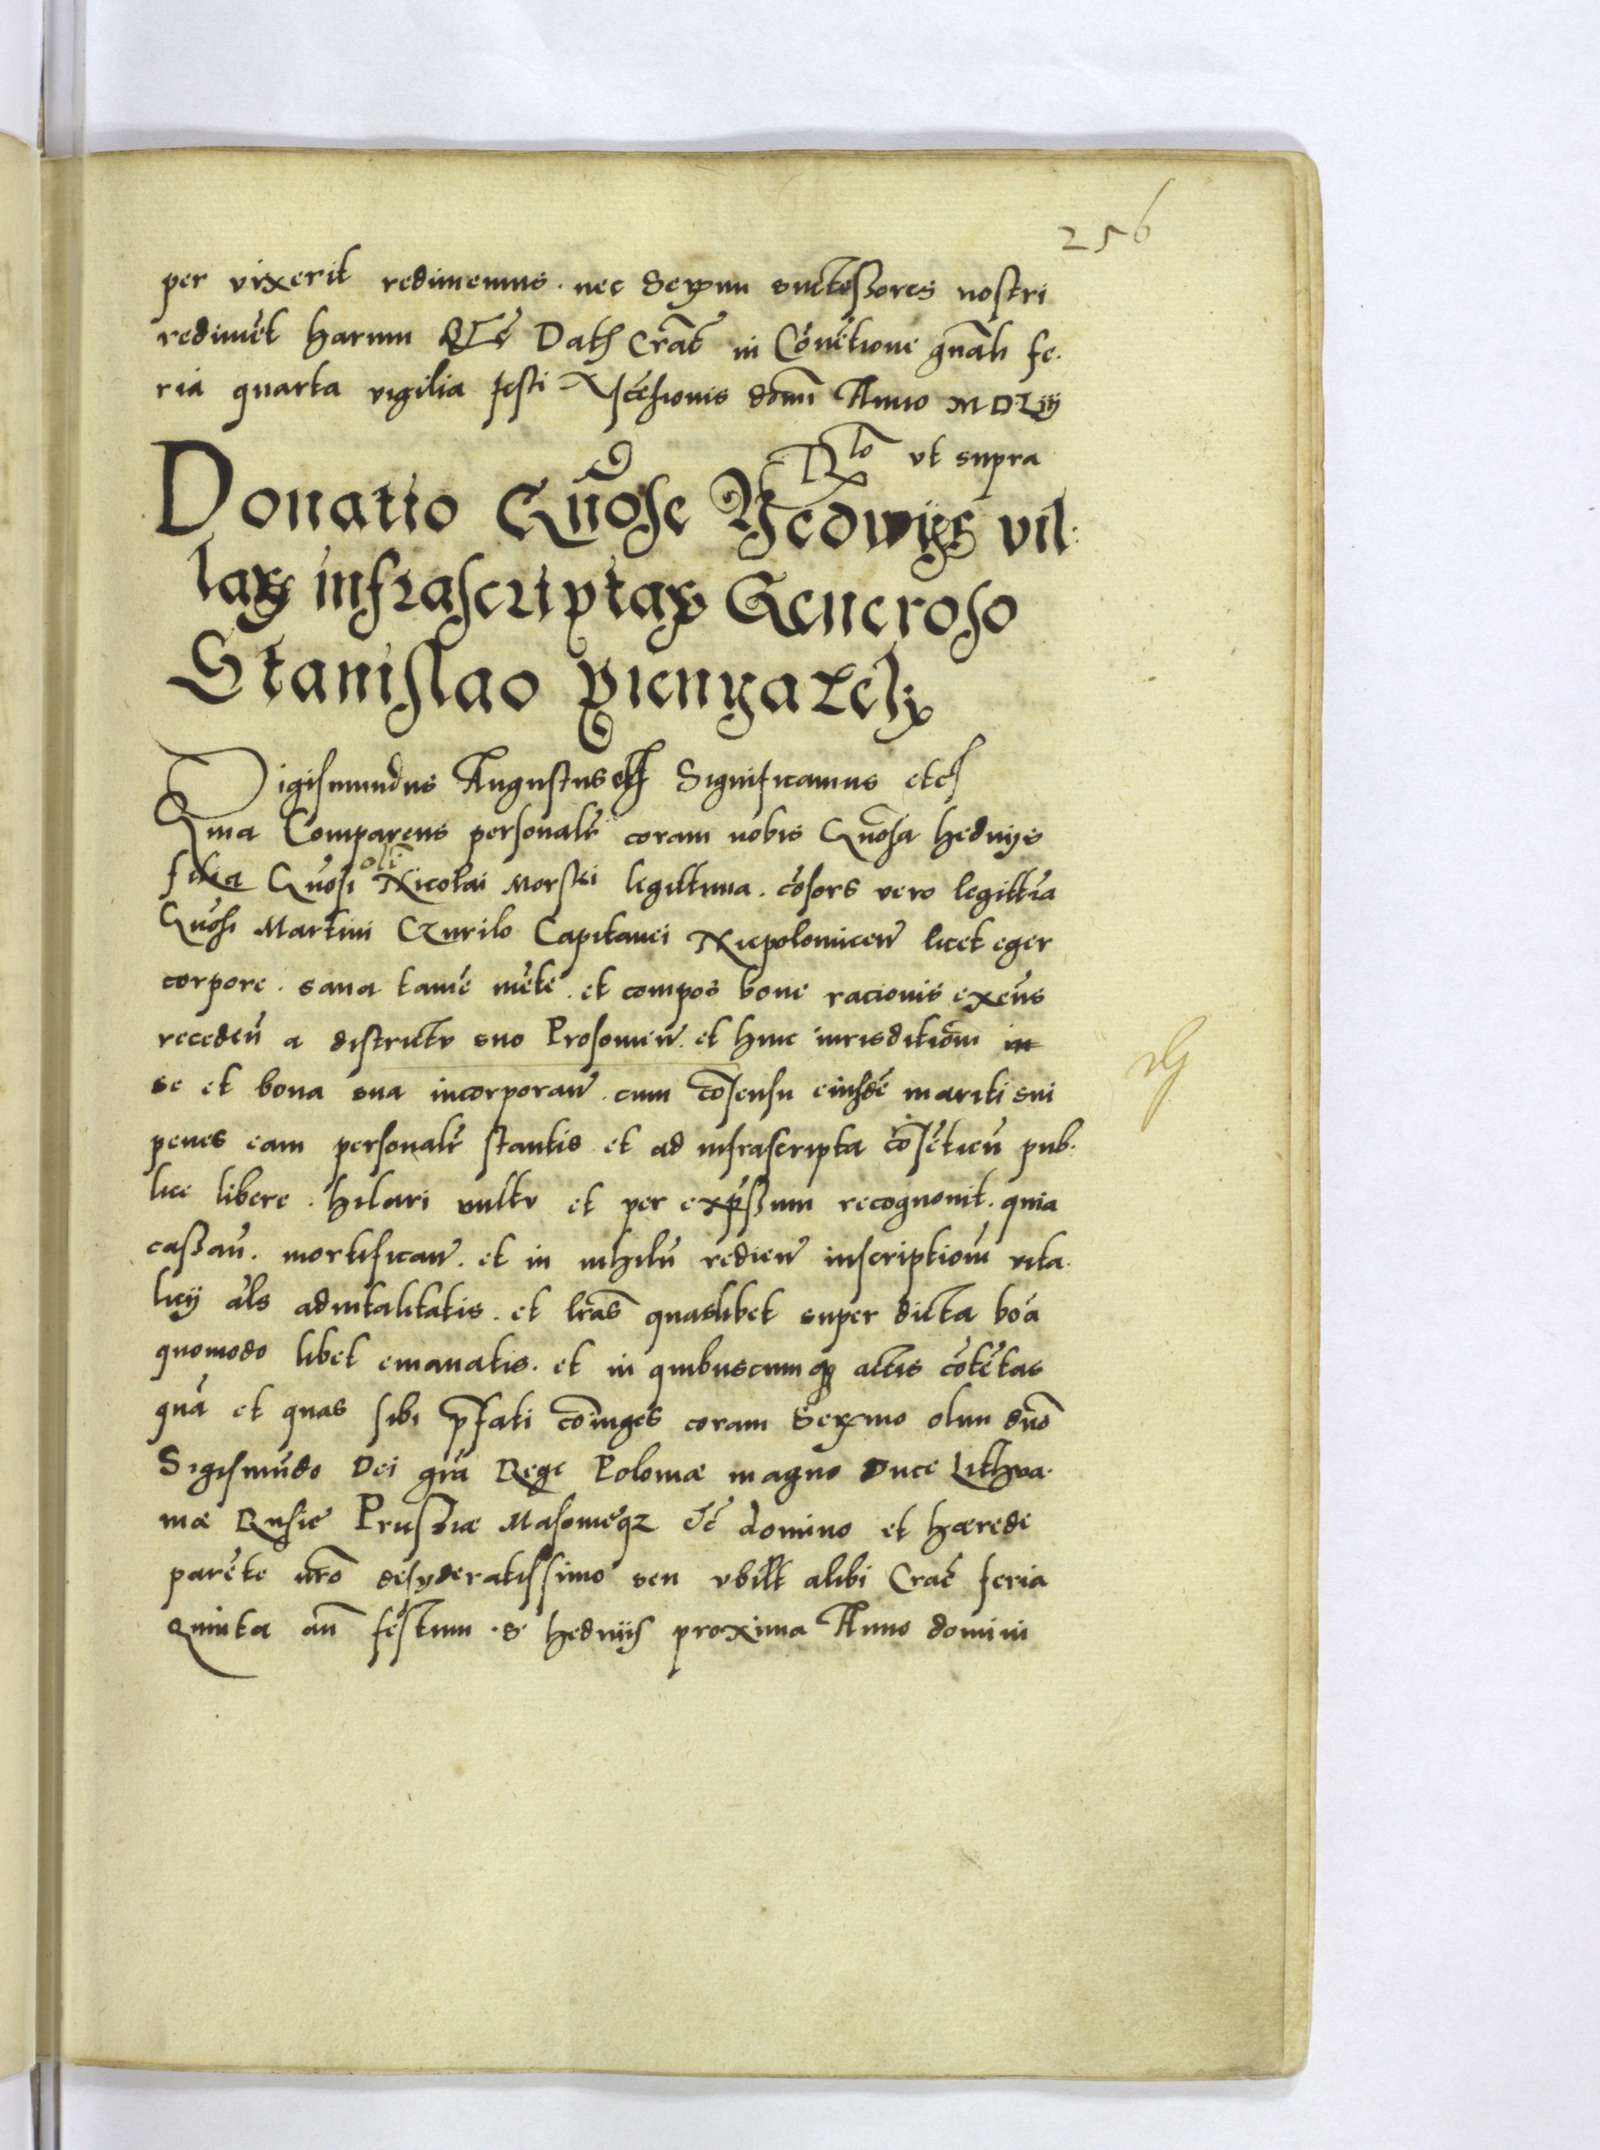 256
per vixerit redimemus . nec Sermi successores nostri
redimēt harum &c̄ Dat̄ Crac̄ in Cōuētione gnāli fe.
ria quarta vigilia festi Ascēsionis domī Anno MDLiij
Rlō vt supra
Donatio Gn̄ose Hedwigis vil:
laꝝ infrascriptaꝝ Generoso
Stanislao Pienyazek
Sigismundus Augustus etc Significamus etc
Quia Comparens personalr̄ coram nobis Gn̄osa heduigis
filia Gn̄osi oli Nicolai Morski legittima . cōsors vero legittīa
Gn̄osi Martini Czurilo Capitanei Niepolomicen̄ licet eger
corpore . sana tamē mēte . et compos bone racionis exeūs
receden̄ a districtu suo Prosouien̄ . et hinc iurisditiōni in
se et bona sua incorporan̄ . cum cōsensu eiusdē mariti sui
penes eam personalr̄ stantis et ad infrascripta cōsētien̄ pub:
lice libere . hilari vultu et per exp̄ssum recognouit . quia
cassan̄ . mortifican̄ . et in nihilū redien̄ inscriptiōm vita
licij als aduitalitatis . et lr̄as quaslibet super dicta boā
quomodo libet emanatis . et in quibuscumqꝫ actis cōtētas
quā et quas sibi p̄fati cōiuges coram Sermo olim dn̄o
Sigismūdo Dei gr̄a Rege Poloniæ magno Duce Lithua
niæ Rusie Prussiæ Masouieqꝫ &c̄ domino et hærede
parēte nr̄o desyderatissimo seu vbilt alibi Crac̄ feria
Quinta an̄ festum . S . heduigis proxima Anno domini